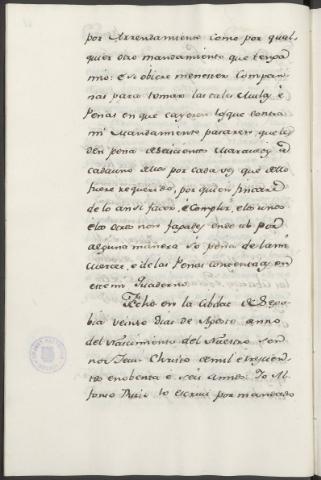 por Arrendamiento como por qual-
quier otro mandamiento que tengan
mio: E si obiere menester Compan-
nas para tomar las tales Mulas é
Penas en que cayeren los que contra
mi Mandamiento pasaren que les
den pena seiscientos Maravedis á
cada uno dellos por cada vez que dello
fuere requerido, por quien fincare
de lo ansi facer, é Complir, e los unos
e los otros non fagades ende al por
alguna manera so pena de la mi
merced, é de las Penas contenidas en
este mi Quaderno.
Fecho en la cibdat de Sego-
bia veinte Dias de Agosto anno
del Nascimiento del Nuestro Sen-
nor Jesu Christo de mil e trescien-
tos e nobenta e seis annos: Yo Al-
fonso Ruiz lo escrivi por mandado